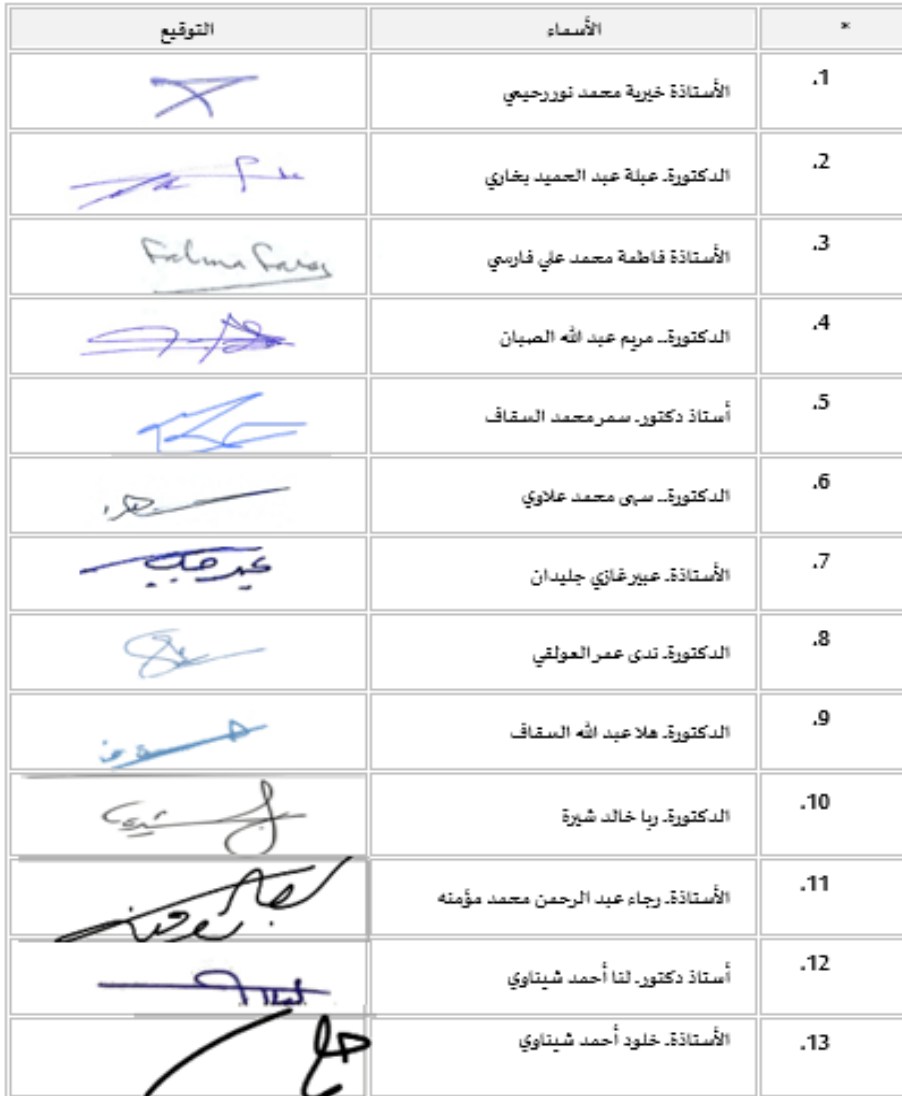 * الأسماء التوقيع
1. الأستاذة خيرية محمد نور رحيمي
2. الدكتورة۔ عبلة عبد الحميد بخاري
3. الأستاذة فاطمة محمد علي فارسي Fatma Farsi
4. الدكتورة۔ مريم عبد الله الصبان
5. أستاذ دكتور۔ سمر محمد السقاف
6. الدكتورة۔ سهى محمد علاوي
7. الأستاذة۔ عبير غازي جليدان
8. الدكتورة۔ ندى عمر العولقي
9. الدكتورة۔ هلا عبد الله السقاف
10. الدكتورة۔ ربا خالد شيرة
11. الأستاذة۔ رجاء عبد الرحمن محمد مؤمنه
12. أستاذ دكتور۔ لنا أحمد شيناوي
13. الأستاذة۔ خلود أحمد شيناوي